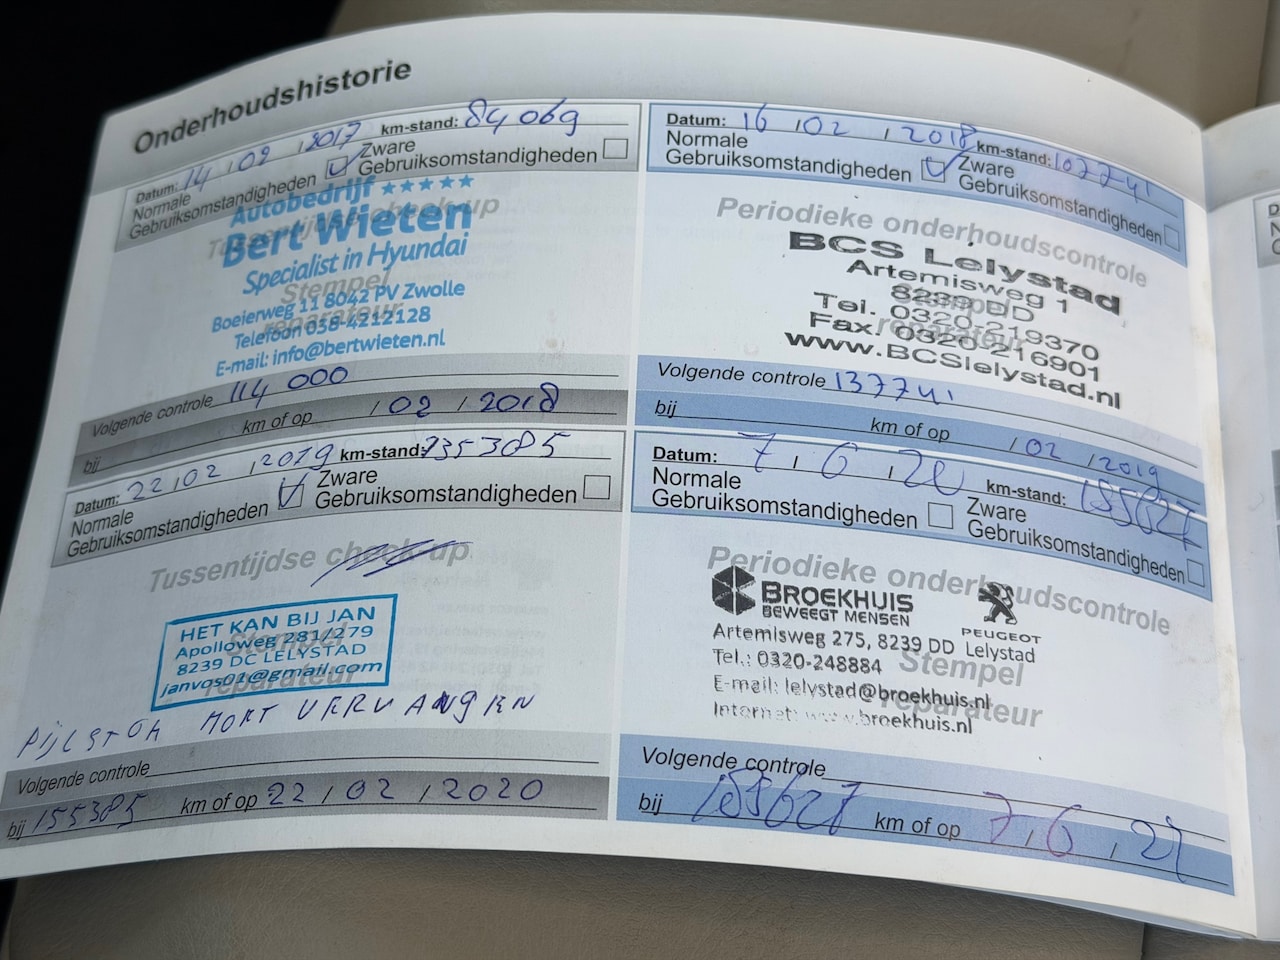 Onderhoudshistorie
Datum: 14 / 02 / 2017 km-stand: 84 069
Normale Gebruiksomstandigheden Zware Gebruiksomstandigheden
Tussentijdse check-up
Autobedrijf ★★★★★
Bert Wieten
Specialist in Hyundai
Stempel
Boeierweg 11 8042 PV Zwolle
reparateur
Telefoon 038-4212128
E-mail: info@bertwieten.nl
Volgende controle 114 000
bij km of op / 02 / 2018
Datum: 16 / 02 / 2018 km-stand: 107741
Normale Gebruiksomstandigheden Zware Gebruiksomstandigheden
Periodieke onderhoudscontrole
BCS Lelystad
Artemisweg 1
8239 DD
Stempel
Tel. 0320-219370
reparateur
Fax. 0320-216901
www.BCSlelystad.nl
Volgende controle 137741
bij km of op / 02 / 2019
Datum: 22 / 02 / 2019 km-stand: 135385
Normale Gebruiksomstandigheden Zware Gebruiksomstandigheden
Tussentijdse check-up
HET KAN BIJ JAN
Apolloweg 281/279
Stempel
8239 DC LELYSTAD
reparateur
janvos01@gmail.com
MOET VERVANGEN
Volgende controle
bij 155385 km of op 22 / 02 / 2020
Datum: 7 / 6 / 20 km-stand: 155627
Normale Gebruiksomstandigheden Zware Gebruiksomstandigheden
Periodieke onderhoudscontrole
BROEKHUIS
BEWEEGT MENSEN
PEUGEOT
Artemisweg 275, 8239 DD Lelystad
Tel.: 0320-248884
Stempel
E-mail: lelystad@broekhuis.nl
reparateur
Internet: www.broekhuis.nl
Volgende controle
bij km of op 7 / 6 /